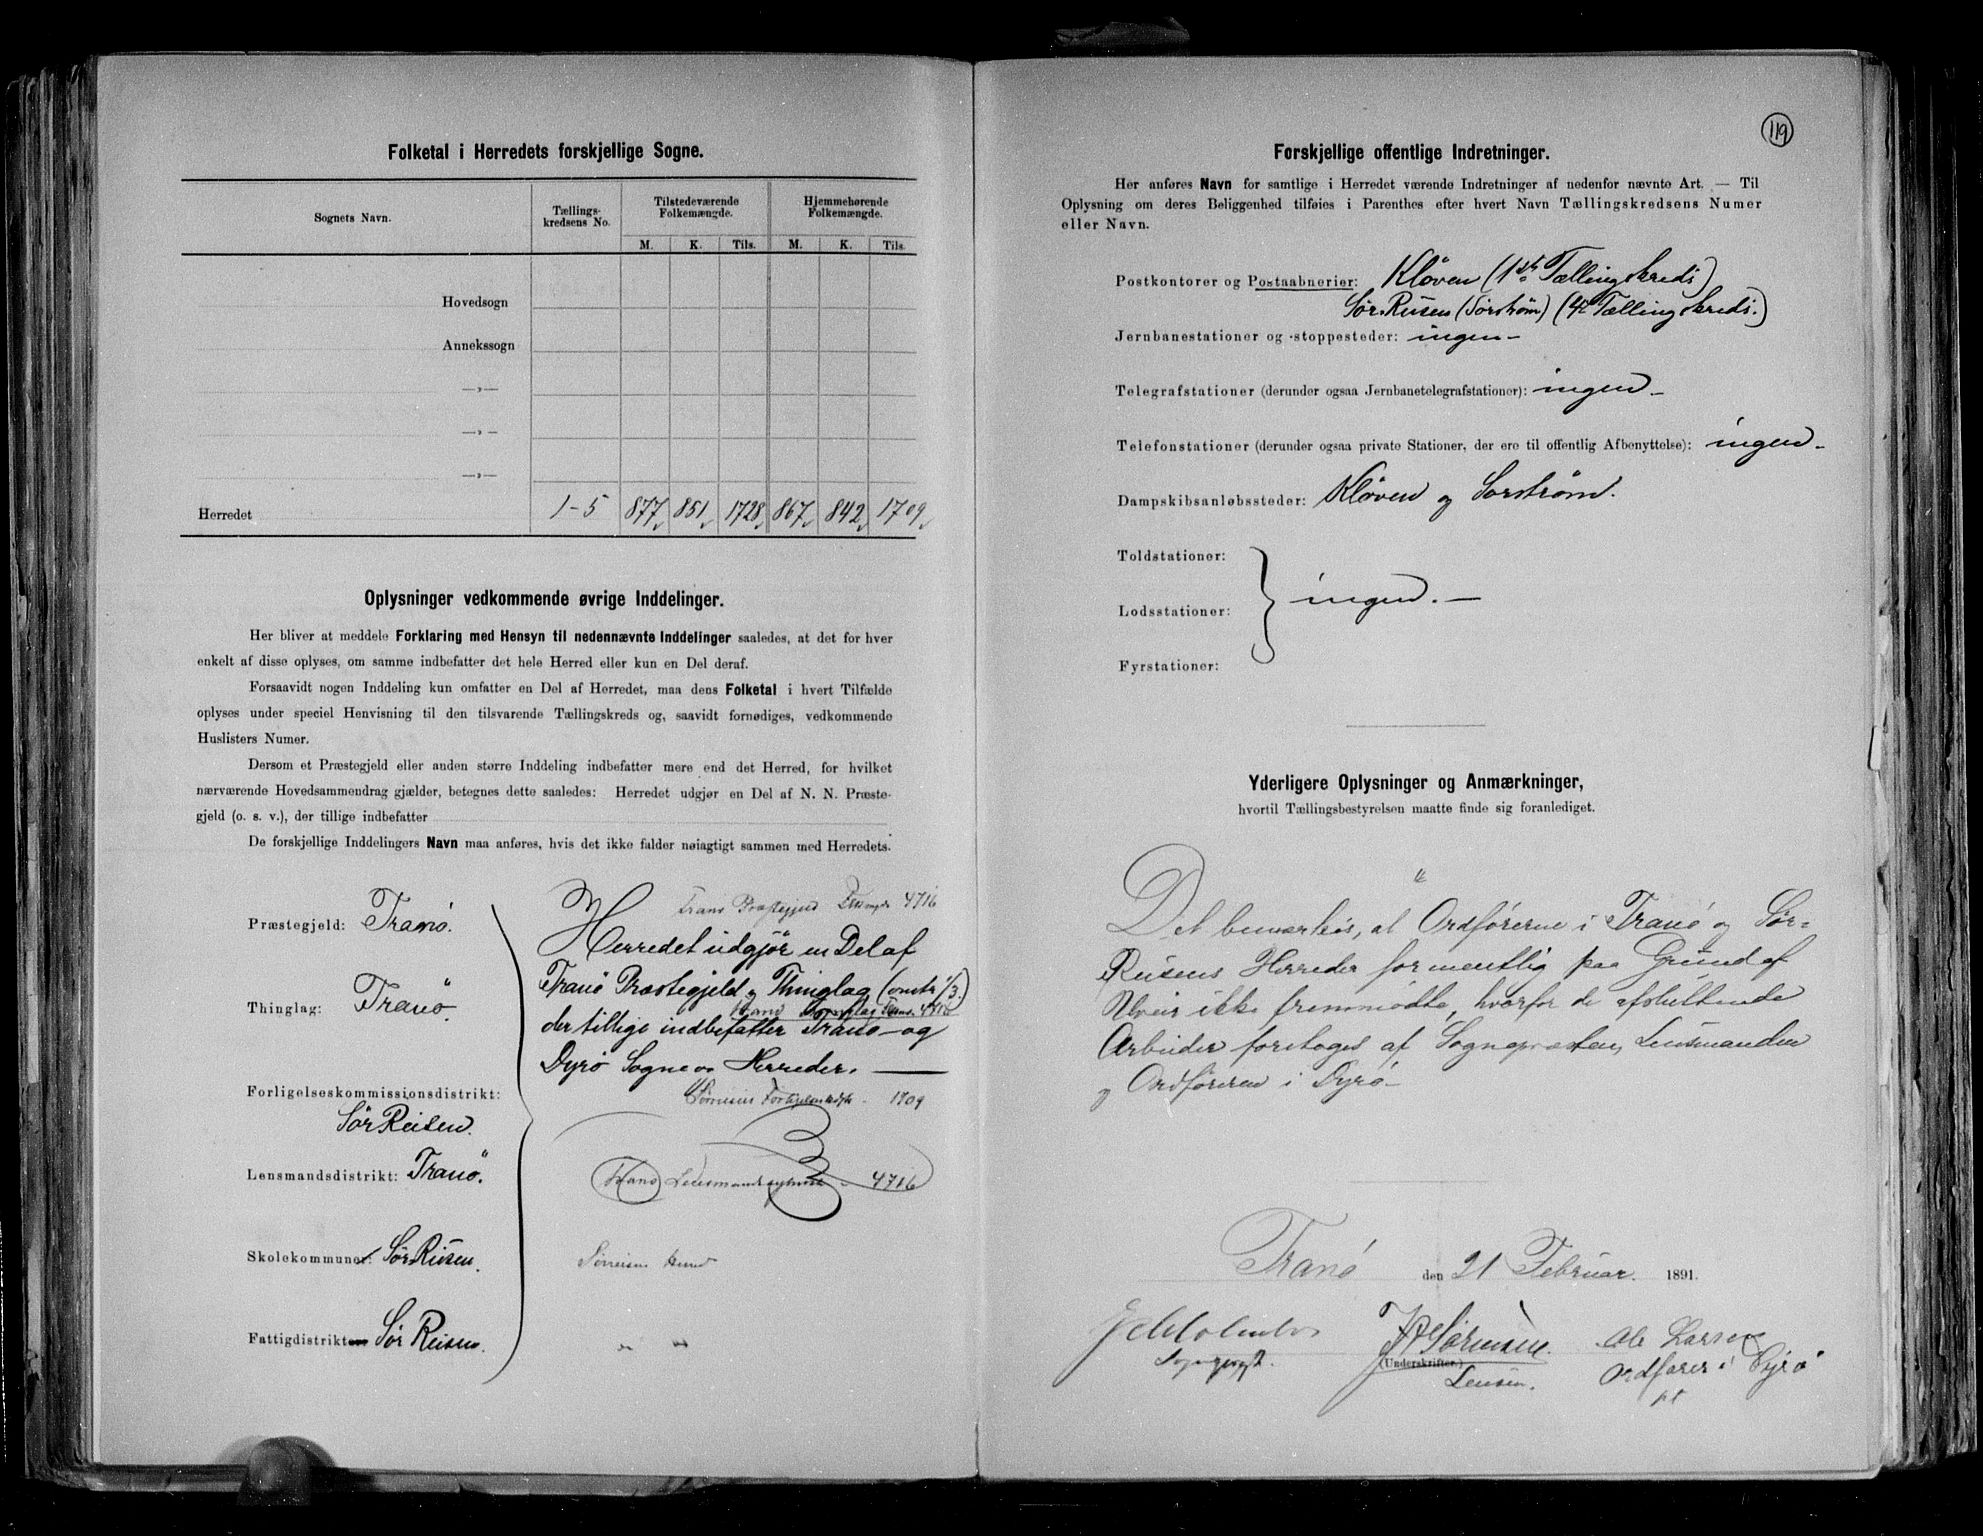 Folketal i Herredets forskjellige Sogne.
Sognets Navn. Tællings-kredsens No. Tilstedeværende Folkemængde. Hjemmehørende Folkemængde.
M. K. Tils. M. K. Tils.
Hovedsogn
Annekssogn
—»—
—»—
—»—
Herredet 1-5 877 851 1728 867 842 1709
Oplysninger vedkommende øvrige Inddelinger.
Her bliver at meddele Forklaring med Hensyn til nedennævnte Inddelinger saaledes, at det for hver
enkelt af disse oplyses, om samme indbefatter det hele Herred eller kun en Del deraf.
Forsaavidt nogen Inddeling kun omfatter en Del af Herredet, maa dens Folketal i hvert Tilfælde
oplyses under speciel Henvisning til den tilsvarende Tællingskreds og, saavidt fornødiges, vedkommende
Huslisters Numer.
Dersom et Præstegjeld eller anden større Inddeling indbefatter mere end det Herred, for hvilket
nærværende Hovedsammendrag gjælder, betegnes dette saaledes: Herredet udgjør en Del af N. N. Præste-
gjeld (o. s. v.), der tillige indbefatter
De forskjellige Inddelingers Navn maa anføres, hvis det ikke falder nøiagtigt sammen med Herredets.
Tranø Præstegjeld 4716
Præstegjeld: Tranø.
Herredet udgjør en Del af
Tranø Præstegjeld og Thinglag (omtr. 1/3.)
Thinglag: Tranø.
Tranø Thinglag 4716
der tillige indbefatter Tranø- og
Dyrø Sogne og Herreder. —
Forligelseskommissionsdistrikt:
Sørreisen 1709
Sør Reisen.
Lensmandsdistrikt: Tranø.
Tranø Lensmandsdistrikt 4716
Skolekommuner: Sør Reisen.
Sørreisen Herred
Fattigdistrikt Sør Reisen.
" "
119
Forskjellige offentlige Indretninger.
Her anføres Navn for samtlige i Herredet værende Indretninger af nedenfor nævnte Art. — Til
Oplysning om deres Beliggenhed tilføies i Parenthes efter hvert Navn Tællingskredsens Numer
eller Navn.
Postkontorer og Postaabnerier: Kløven (1ste Tællingskreds)
Sør Reisen (Sørstrøm) (4 Tællingskreds.)
Jernbanestationer og -stoppesteder: ingen —
Telegrafstationer (derunder ogsaa Jernbanetelegrafstationer): ingen —
Telefonstationer (derunder ogsaa private Stationer, der ere til offentlig Afbenyttelse): ingen —
Dampskibsanløbssteder: Kløven og Sørstrøm.
Toldstationer:
Lodsstationer: ingen. —
Fyrstationer:
Yderligere Oplysninger og Anmærkninger,
hvortil Tællingsbestyrelsen maatte finde sig foranlediget.
Det bemærkes, at Ordførerne i Tranø og Sør-
Reisens Herreder formentlig paa Grund af
Uveir ikke fremmødte, hvorfor de afsluttende
Arbeider foretoges af Sognepræsten, Lensmanden
og Ordføreren i Dyrø —
Tranø den 21 Februar. 1891.
Holmboe J Sørensen. Ole Larsen
Sognepræst. (Underskrifter.) Ordfører i Dyrø
Lensm.